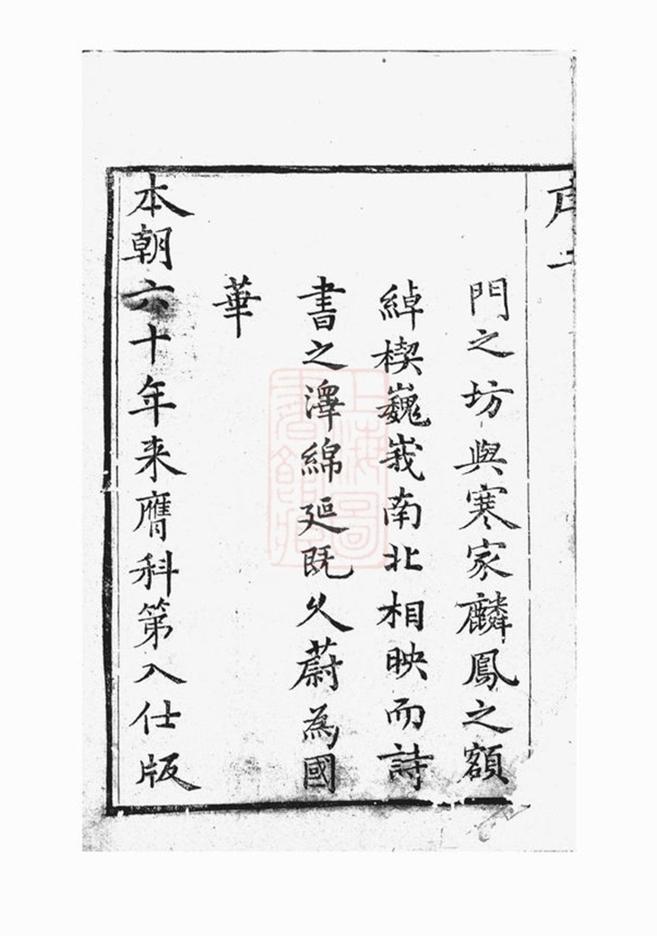 序
門之坊與寒家麟鳳之額
綽楔巍峩南北相映而詩
書之澤綿延既久蔚為國
華
本朝六十年来膺科第入仕版
上海圖書館藏